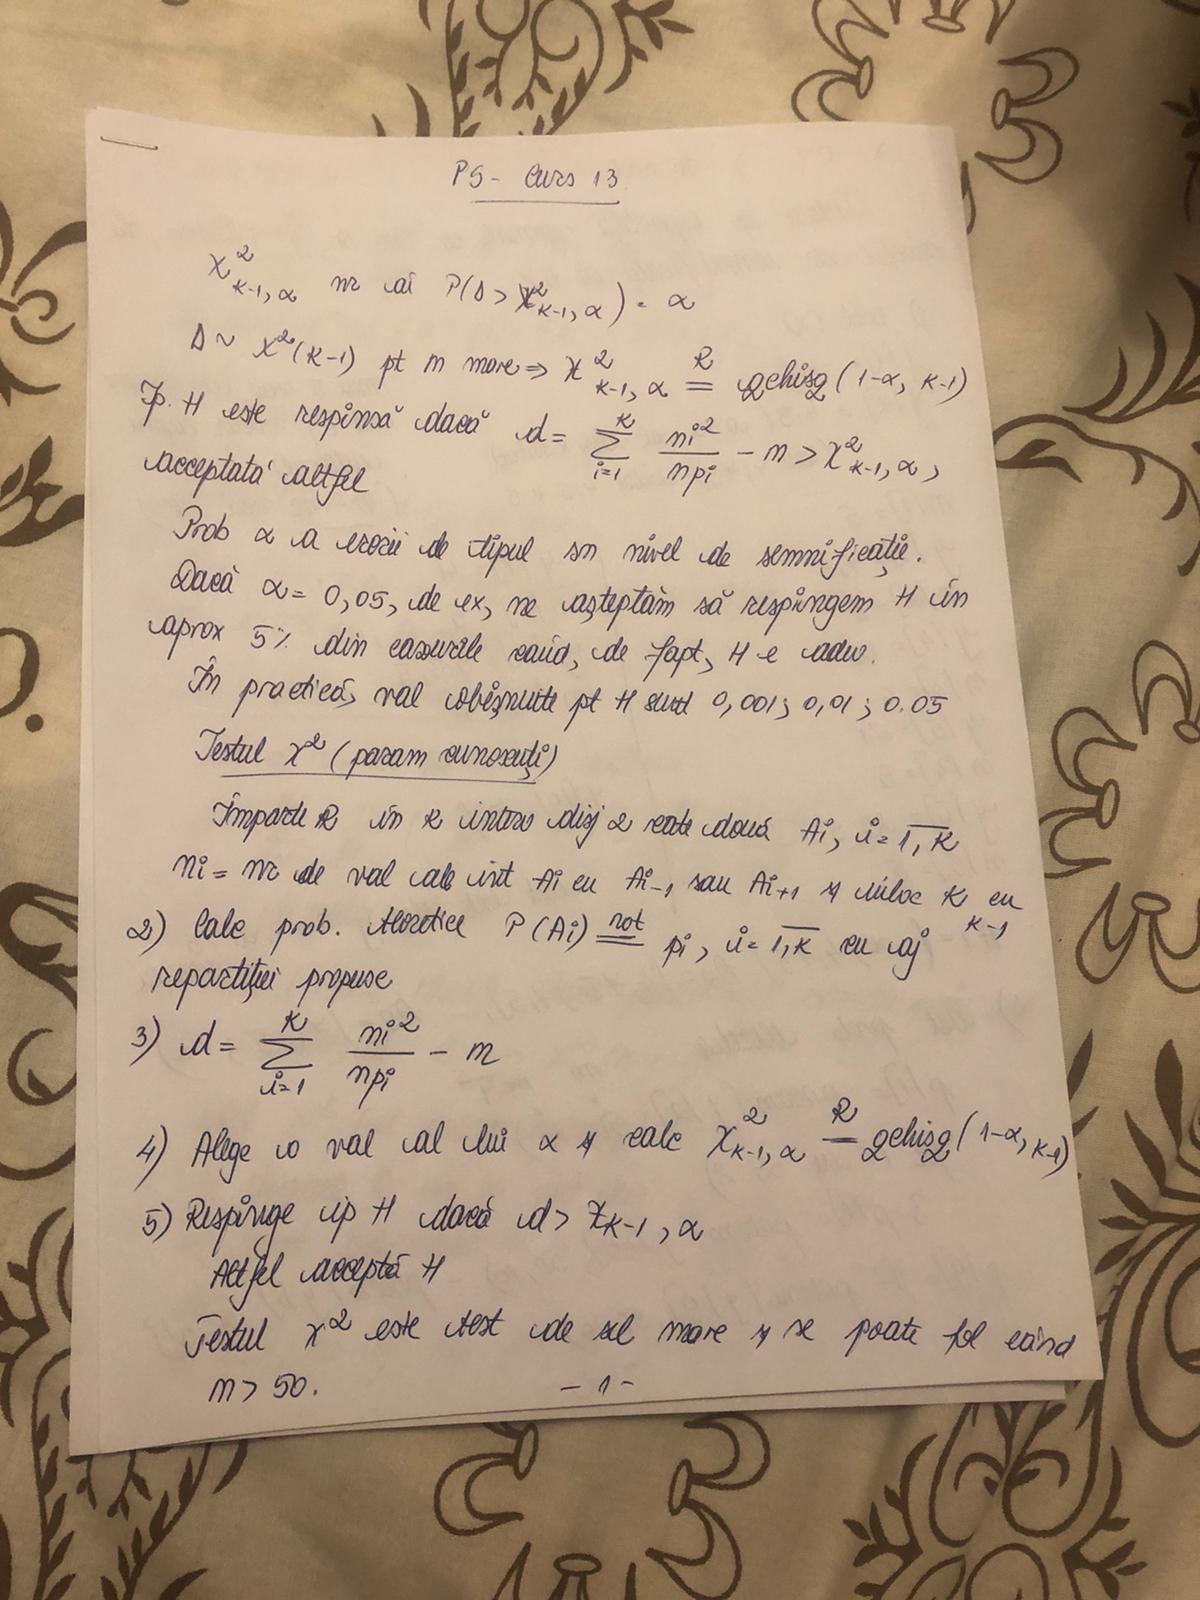 PS - Curs 13
χ²_{k-1,α} nr aî P(D > χ²_{k-1,α}) = α
D ~ χ²(k-1) pt n mare ⇒ χ²_{k-1,α} =^R qchisq(1-α, k-1)
Ip. H este respinsă dacă d = Σ_{i=1}^{k} ni²/npi - n > χ²_{k-1,α},
acceptată altfel
Prob α a erorii de tipul sn nivel de semnificație.
Dacă α = 0,05, de ex, ne așteptăm să respingem H în
aprox 5% din cazurile când, de fapt, H e adev.
În practică, val obișnuite pt H sunt 0,001; 0,01; 0.05
Testul χ² (param cunoscuți)
Împarte R în k interv disj 2 câte două Ai, i = 1,k
ni = nr de val ale int Ai cu Ai-1 sau Ai+1 și înloc k cu
k-1
2) Calc prob. teoretice P(Ai) =^{not} pi, i = 1,k cu aj
repartiției propuse
3) d = Σ_{i=1}^{k} ni²/npi - n
4) Alege o val al lui α și calc χ²_{k-1,α} =^R qchisq(1-α, k-1)
5) Respinge ip H dacă d > χ_{k-1,α}
Altfel acceptă H
Testul χ² este test de sel mare și se poate fol când
n > 50.
- 1 -